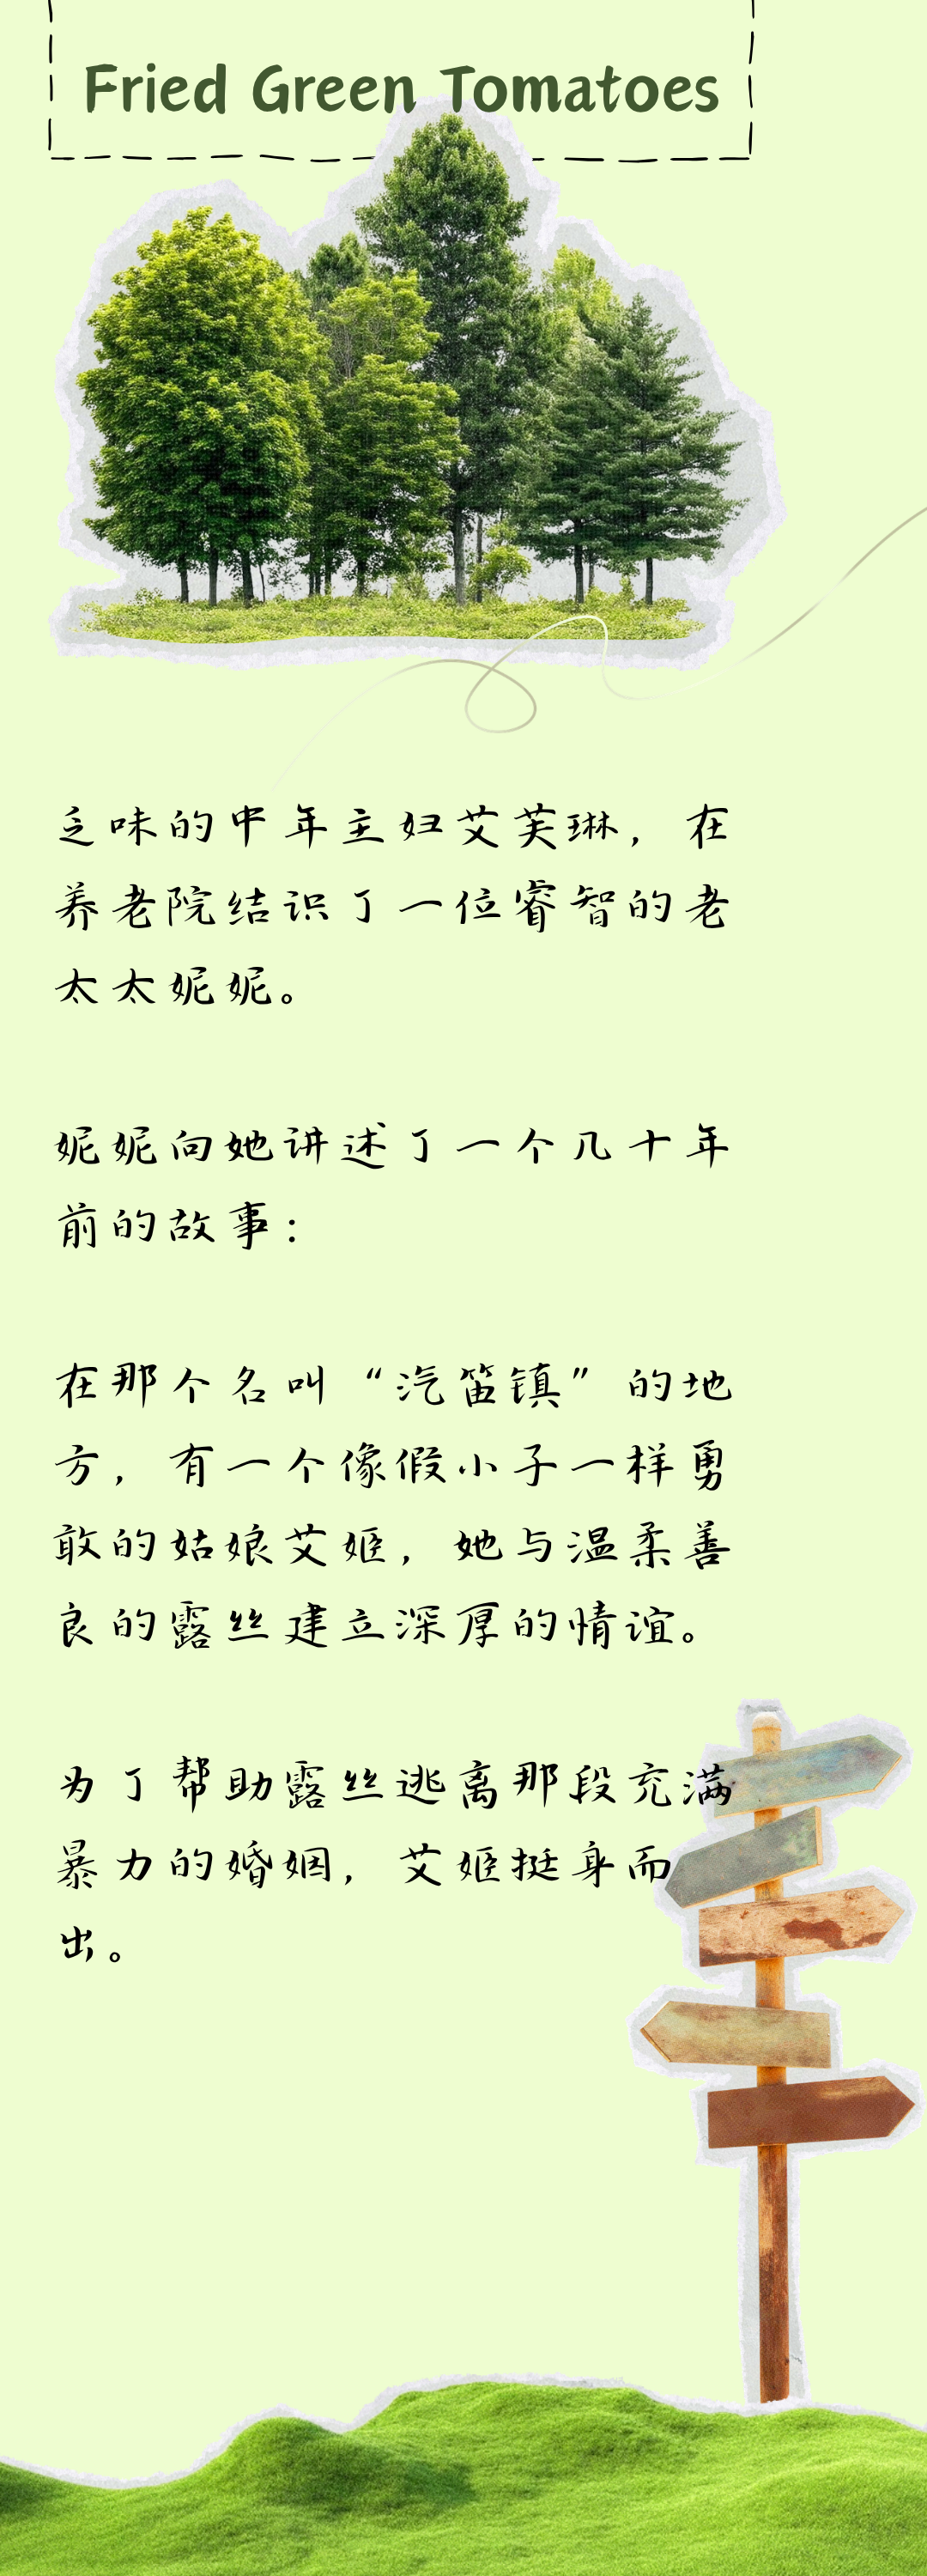 Fried Green Tomatoes
乏味的中年主妇艾芙琳，在
养老院结识了一位睿智的老
太太妮妮。
妮妮向她讲述了一个几十年
前的故事：
在那个名叫“汽笛镇”的地
方，有一个像假小子一样勇
敢的姑娘艾姬，她与温柔善
良的露丝建立深厚的情谊。
为了帮助露丝逃离那段充满
暴力的婚姻，艾姬挺身而
出。